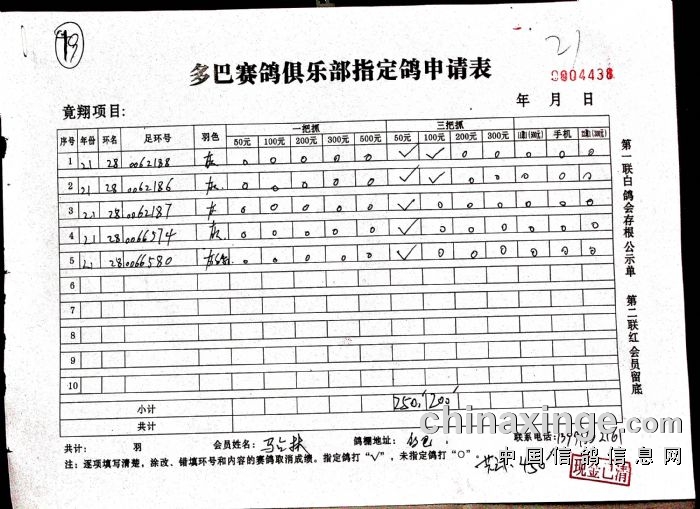 19
21
多巴赛鸽俱乐部指定鸽申请表
0004438
年 月 日
竟翔项目:
序号 年份 环名 足环号 羽色 一把抓 三把抓
50元 100元 200元 300元 500元 50元 100元 200元 300元 手机
1 21 28 0062188 灰 0 0 0 0 0 ✓ ✓ 0 0 0 0 0
2 21 28 0062186 灰 0 0 0 0 0 ✓ ✓ 0 0 0 0 0
3 21 28 0062187 灰 0 0 0 0 0 ✓ 0 0 0 0 0 0
4 21 28 0066574 灰 0 0 0 0 0 ✓ 0 0 0 0 0 0
5 21 28 0066580 0 0 0 0 0 ✓ 0 0 0 0 0 0
6
7
8
9
10
小计 250 200
共计
第一联白 鸽会存根 公示单 第二联红 会员留底
共计: 羽 会员姓名: 鸽棚地址: 联系电话:
注: 逐项填写清楚, 涂改、错填环号和内容的赛鸽取消成绩。指定鸽打“√”, 未指定鸽打“O”。
450
现金已清
chinaxinge.com
中国信鸽信息网